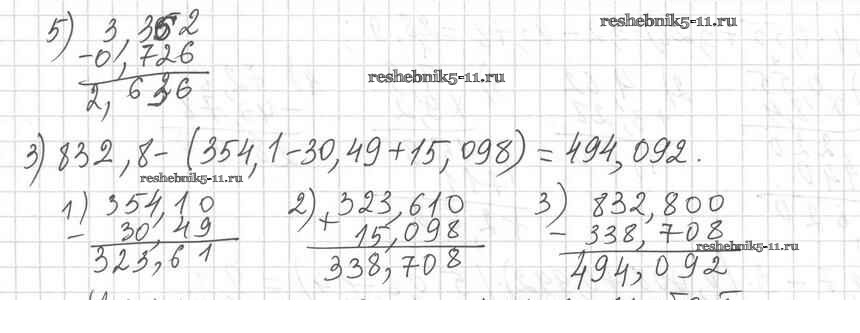 5) 3,352
reshebnik5-11.ru
-0,726
2,626
reshebnik5-11.ru
3) 832,8-(354,1-30,49+15,098)=494,092.
reshebnik5-11.ru
1) 354,10 2) 323,610 3) 832,800
- 30,49 + 15,098 - 338,708
323,61 338,708 494,092
reshebnik5-11.ru